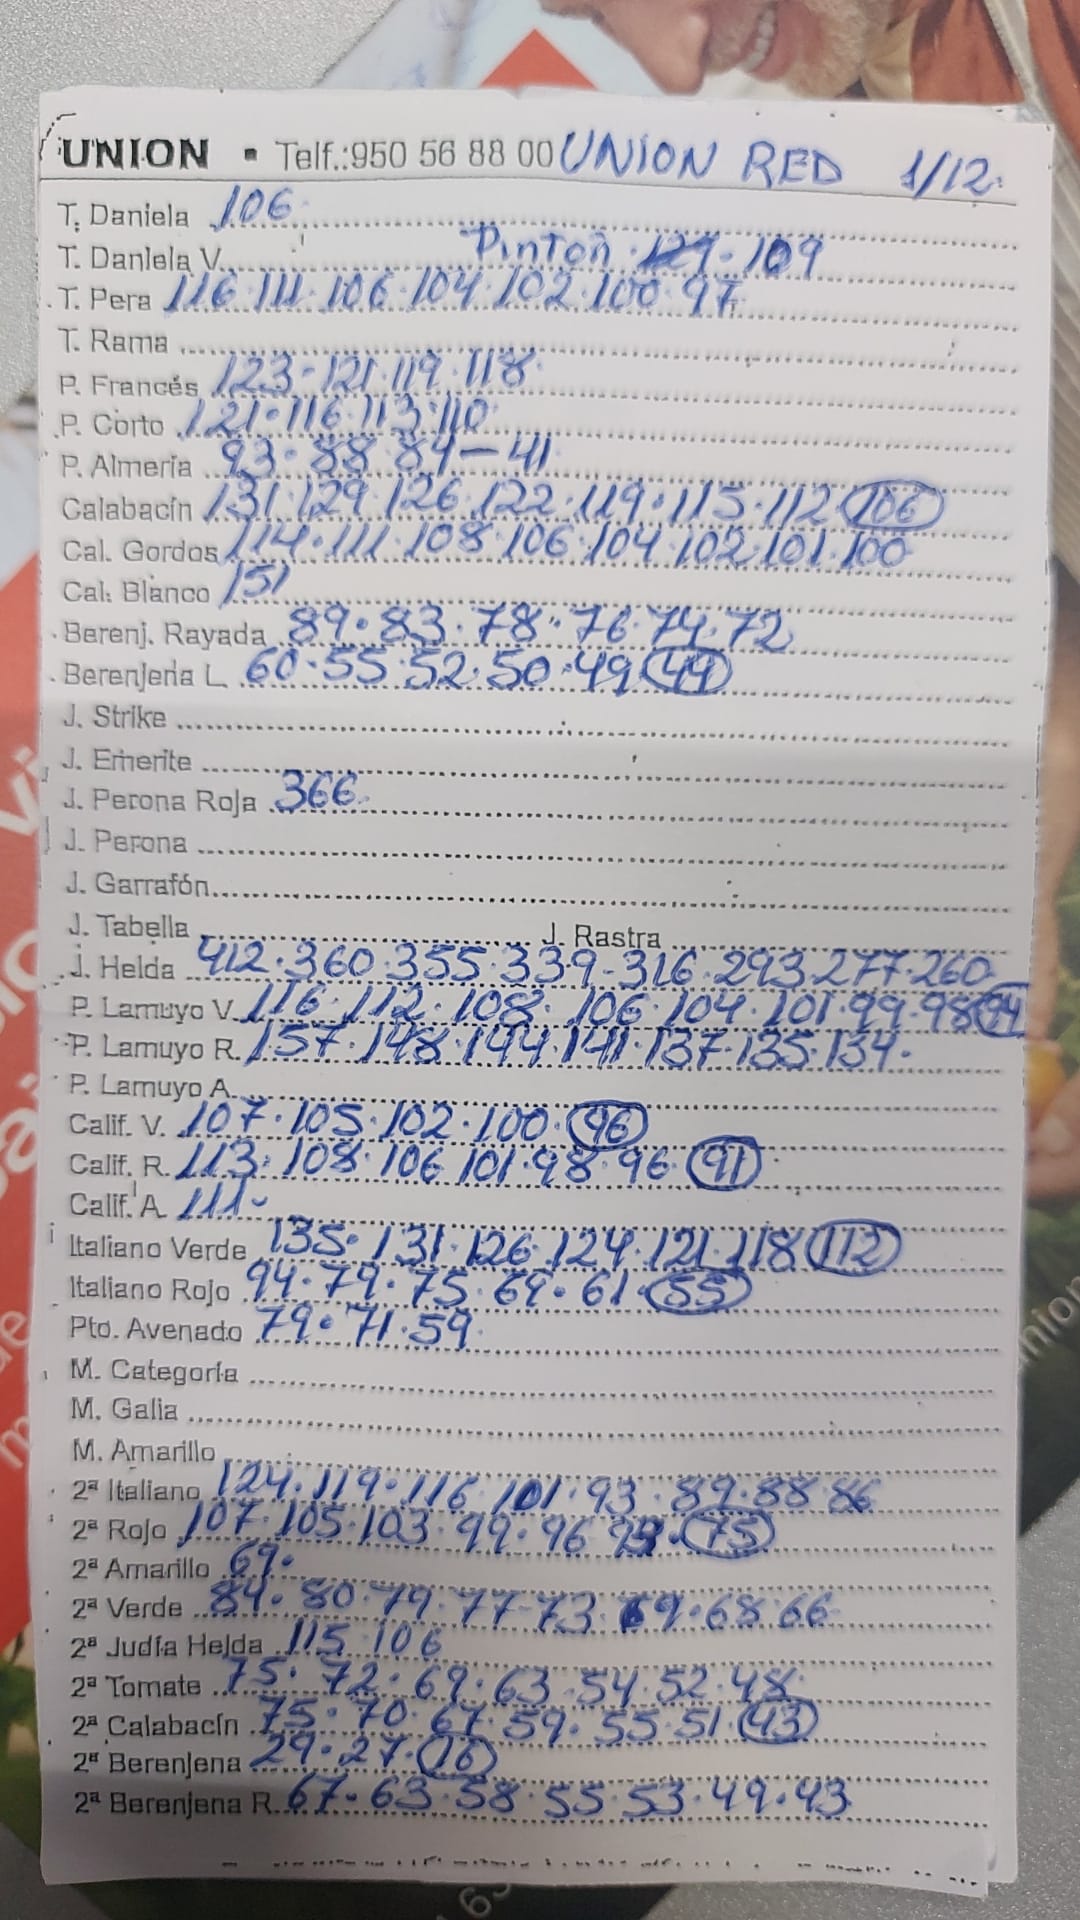 UNION • Telf.:950 56 88 00 UNION RED 1/12
T. Daniela 106
T. Daniela V. Pinton 109
T. Pera 116 111 106 104 102 100 97
T. Rama
P. Francés 123-121 119 118
P. Corto 121 116 113 110
P. Almeria 93 88 84-41
Calabacín 131 129 126 122 119 115 112 106
Cal. Gordos 114 111 108 106 104 102 101 100
Cal. Blanco 151
Berenj. Rayada 89 83 78 76 74 72
Berenjena L. 60 55 52 50 49 44
J. Strike
J. Emerite
J. Perona Roja 366
J. Perona
J. Garrafón
J. Tabella J. Rastra
J. Helda 412 360 355 339-316 293 277 260
P. Lamuyo V. 116 112 108 106 104 101 99 98 94
P. Lamuyo R. 157 148 144 141 137 135 134
P. Lamuyo A.
Calif. V. 107 105 102 100 96
Calif. R. 113 108 106 101 98 96 91
Calif. A. 111
Italiano Verde 135 131 126 124 121 118 112
Italiano Rojo 94 79 75 69 61 55
Pto. Avenado 79 71 59
M. Categoría
M. Galia
M. Amarillo
2ª Italiano 124 119 116 101 93 89 88 86
2ª Rojo 107 105 103 99 96 75
2ª Amarillo 69
2ª Verde 84 80 79 77-73 69 68 66
2ª Judía Helda 115 106
2ª Tomate 75 72 69 63 54 52 48
2ª Calabacín 75 70 67 59 55 51 43
2ª Berenjena 29 27 16
2ª Berenjena R. 67 63 58 55 53 49 43